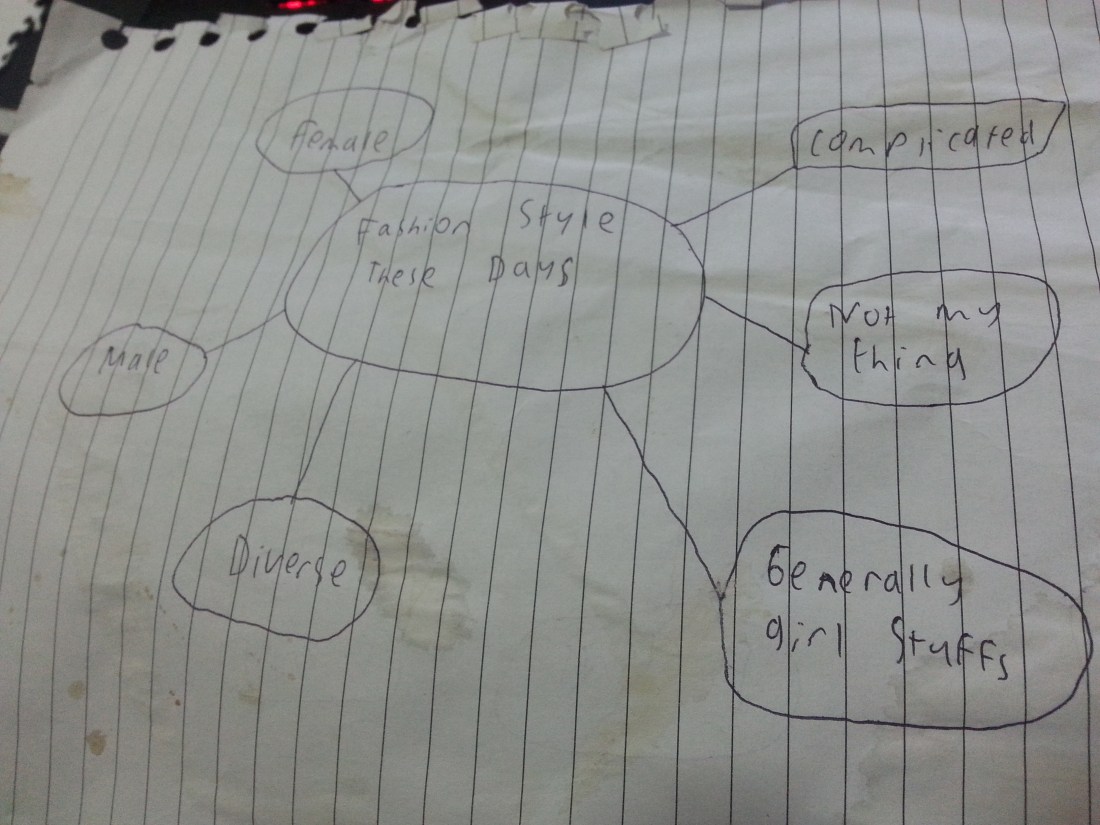 Female
Complicated
Fashion Style
These Days
Not my
thing
Male
Diverse
Generally
girl Stuffs